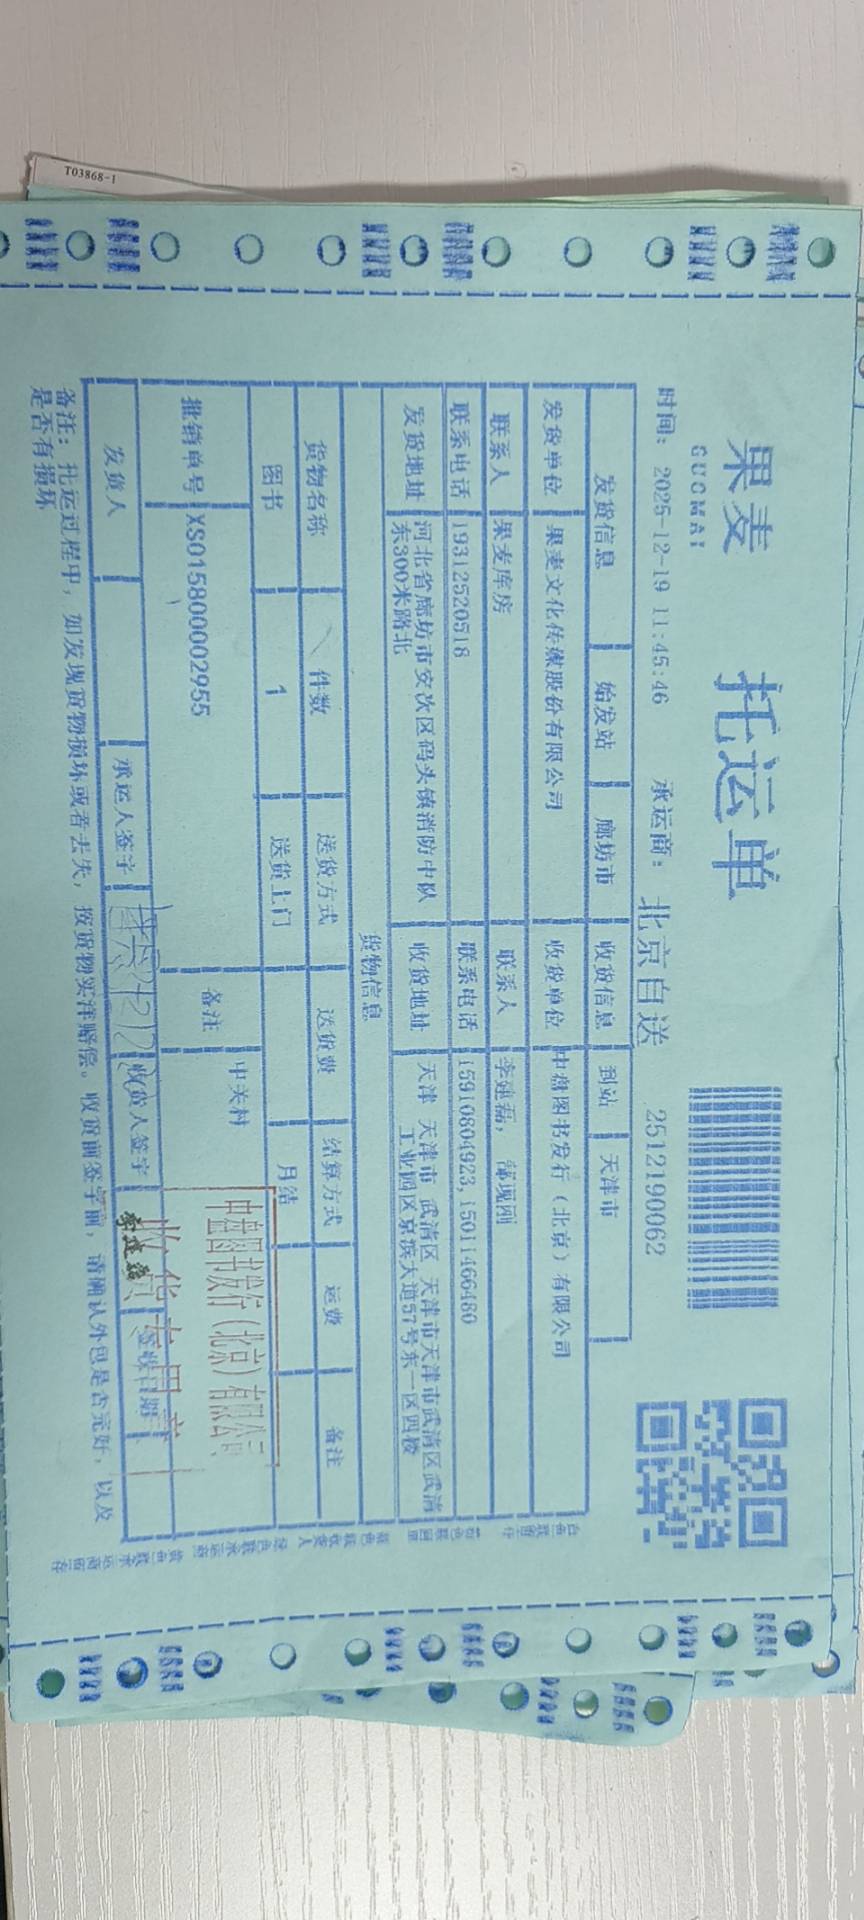 T03868-1
果麦
GUOMAI
托运单
时间：2025-12-19 11:45:46 承运商：北京自送 2512190062
发货信息 始发站 廊坊市 收货信息 到站 天津市
发货单位 果麦文化传媒股份有限公司 收货单位 中盘图书发行（北京）有限公司
联系人 果麦库房 联系人 李建磊，
联系电话 19312520518 联系电话 15910804923,15011466480
发货地址 河北省廊坊市安次区码头镇消防中队东300米路北 收货地址 天津 天津市 武清区 天津市天津市武清区武清工业园区京滨大道57号东一区四楼
货物信息
货物名称 件数 送货方式 送货费 结算方式 运费 备注
图书 1 送货上门 月结
批销单号 XS015800002955 备注 中关村
中盘图书发行（北京）有限公司
收货专用章
发货人 承运人签字 收货人签字 李建磊 签收日期
备注：托运过程中，如发现货物损坏或者丢失，按货物实洋赔偿。收货前签字前，请确认外包是否完好，以及
是否有损坏